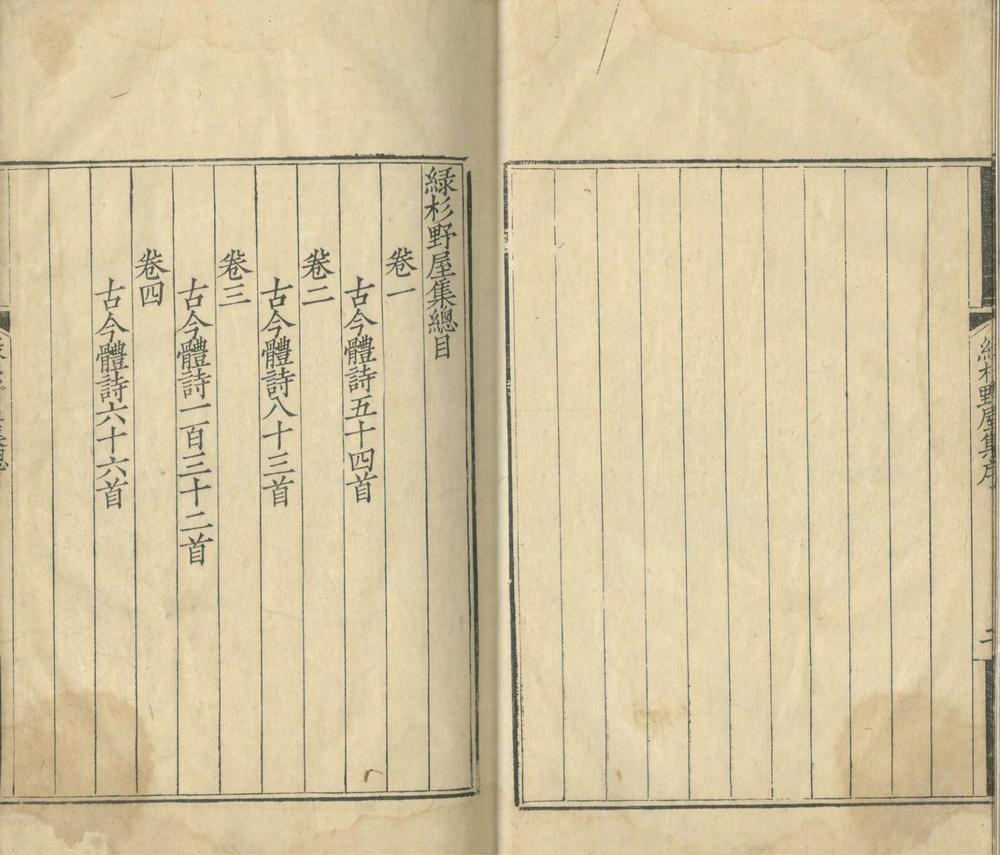 綠杉野屋集序
二
綠杉野屋集總目
卷一
古今體詩五十四首
卷二
古今體詩八十三首
卷三
古今體詩一百三十二首
卷四
古今體詩六十六首